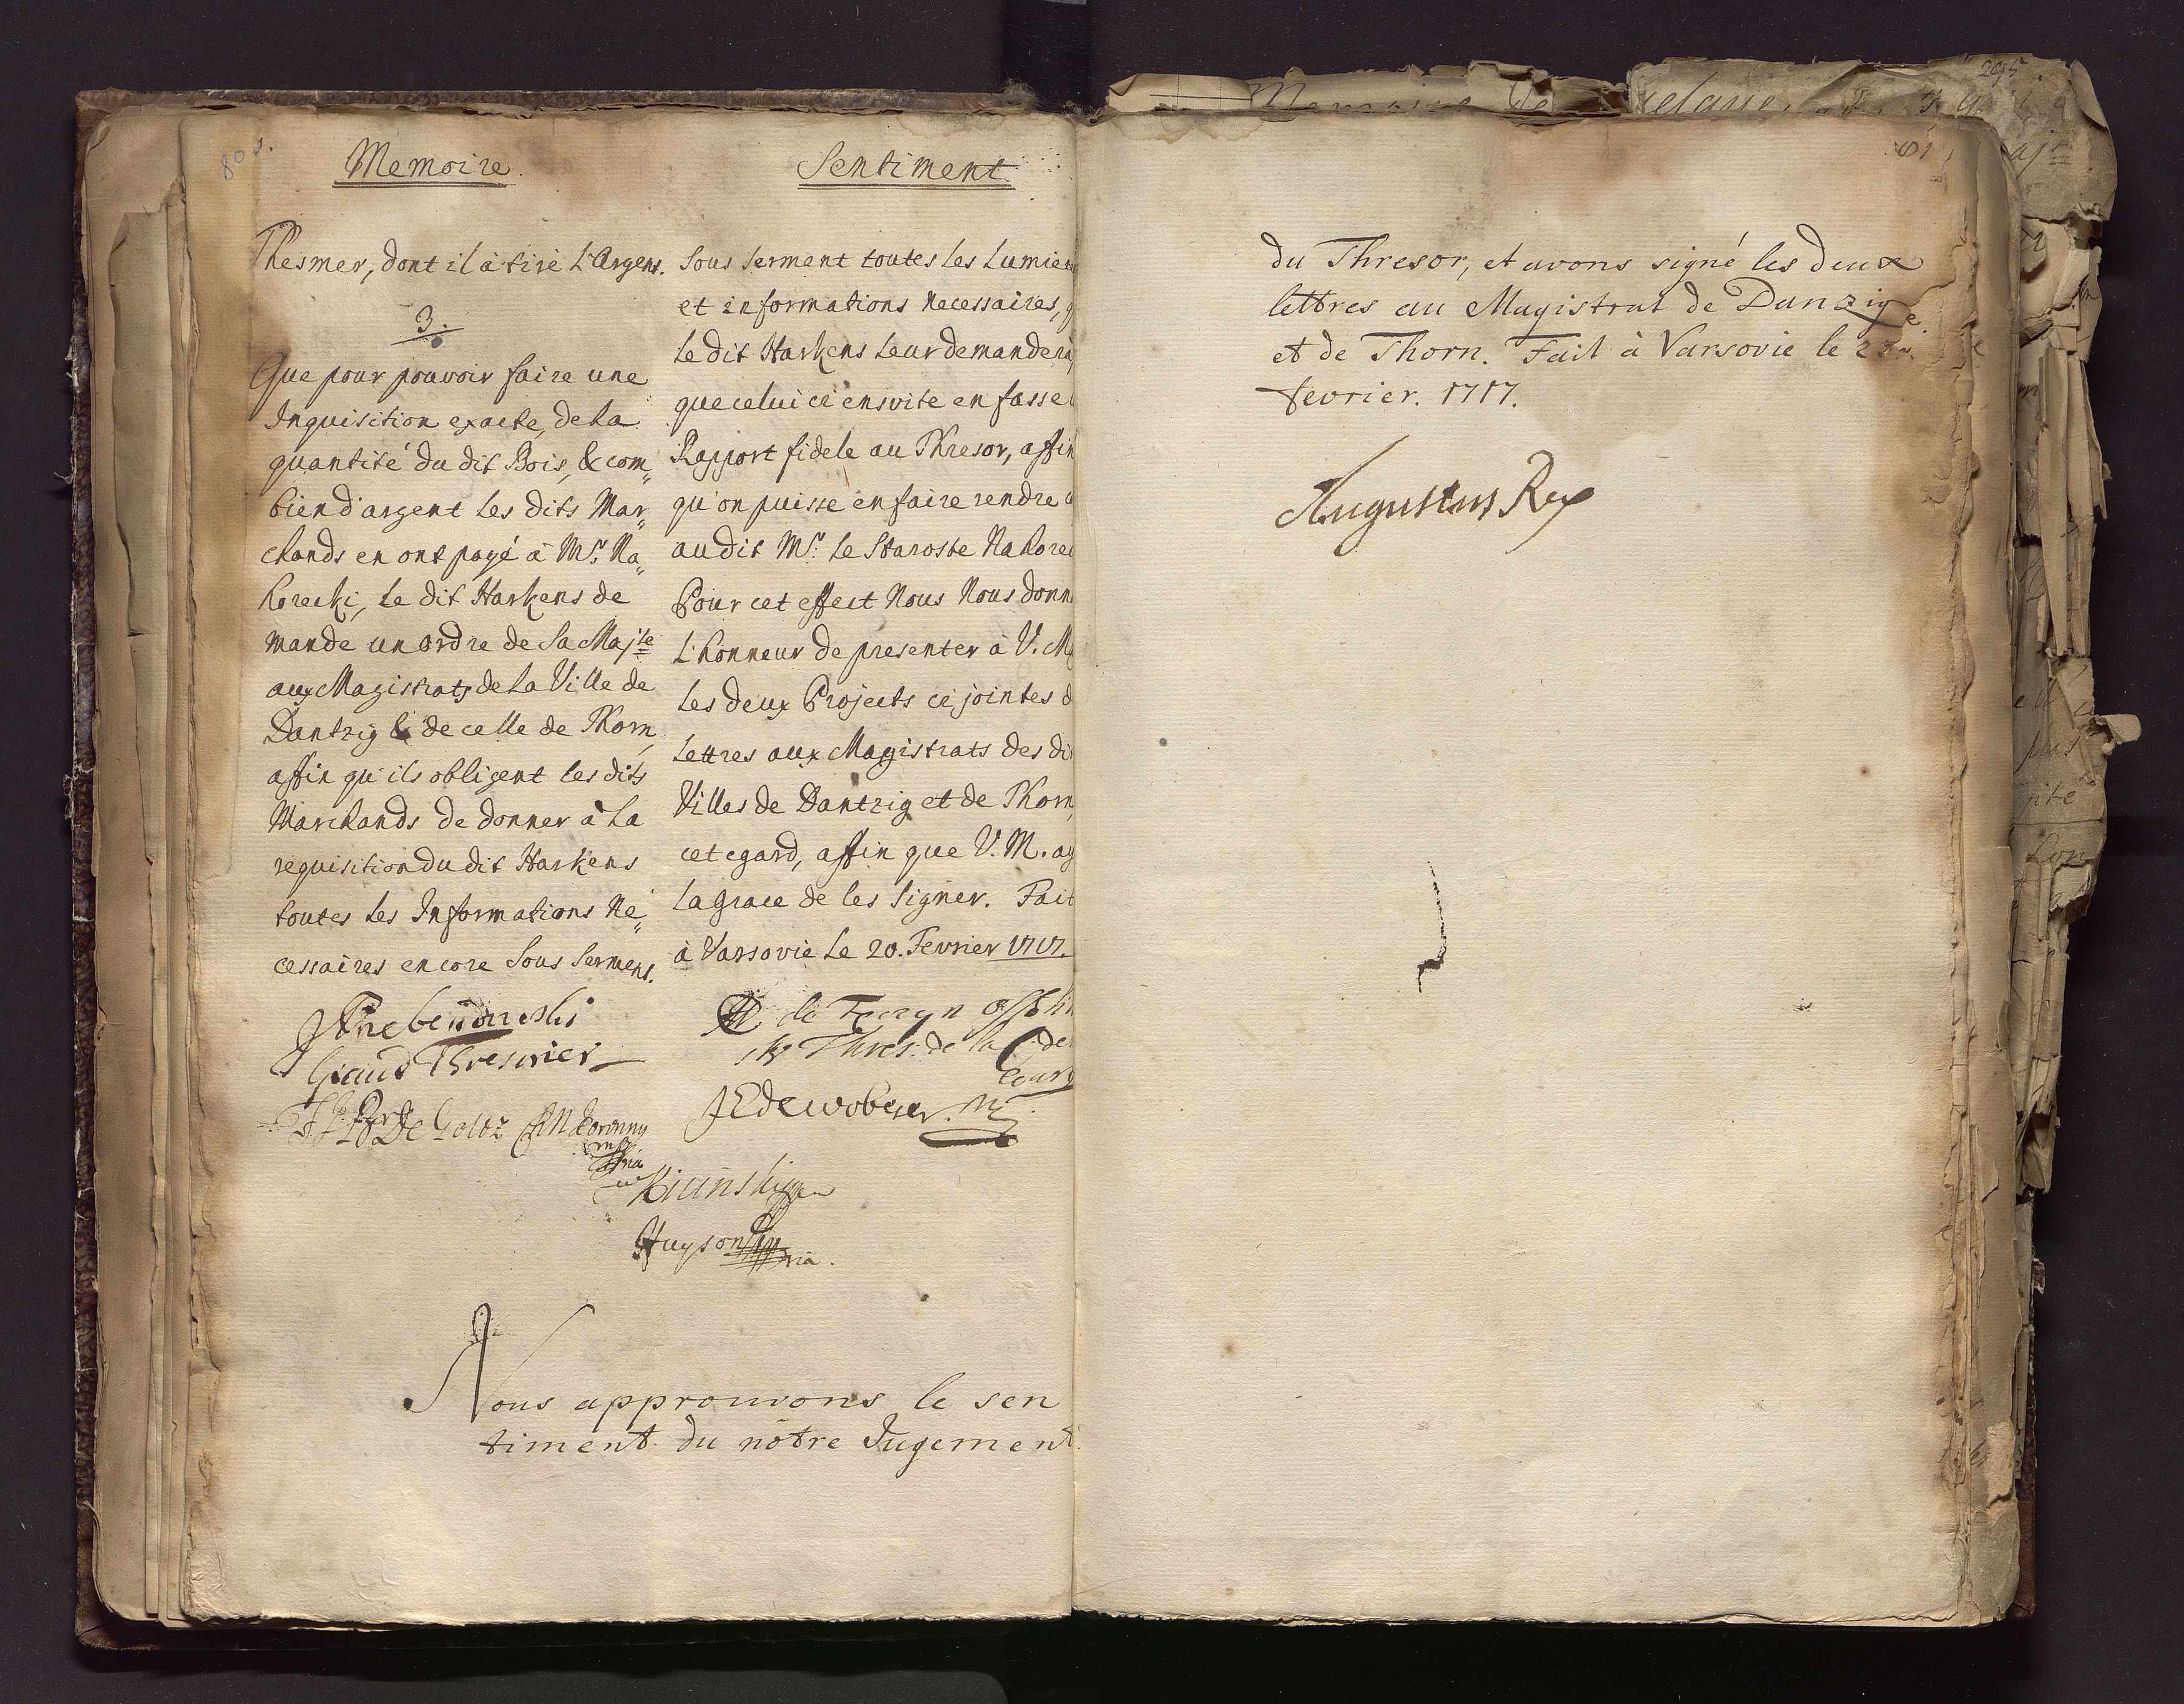 80
Memoire.
Thesmer, dont il à tiré L'Argent.
3.
Que pour pouvoir faire une
Inquisition exacte, de la
quantité du dit Bois, & com„
bien d'argent les dits Mar„
chands en ont payé à Mr. Na„
korecki, le dit Harkens de
mande un ordre de Sa Majte
aux Magistrats de la Ville de
Dantzig & de celle de Thorn,
affin qu'ils obligent les dits
Marchands de donner à la
requisition du dit Harkens
toutes les Informations Ne„
cessaires encore sous serment.
Grand Thresorier
Sentiment
Sous serment toutes les Lumie
et informations necessaires,
le dit Harkens leur demandera,
que celui ci ensuite en fasse
Rapport fidele au Thresor, affin
qu'on puisse en faire rendre
au dit Mr. le Staroste Nakore
Pour cet effect Nous Nous donn
L'honneur de presenter à V. M
les deux Projects ci jointes d
lettres aux Magistrats des di
Villes de Dantzig et de Thorn,
cet egard, affin que V. M. ay
la grace de les signer. Fait
à Varsovie le 20. Fevrier 1717.
Thres: de la
Cour
Nous approuvons le sen
timent du nôtre Jugement
81
du Thresor, et avons signé les deux
lettres au Magistrat de Danzig
et de Thorn. Fait à Varsovie le
fevrier. 1717.
Augustus Rex